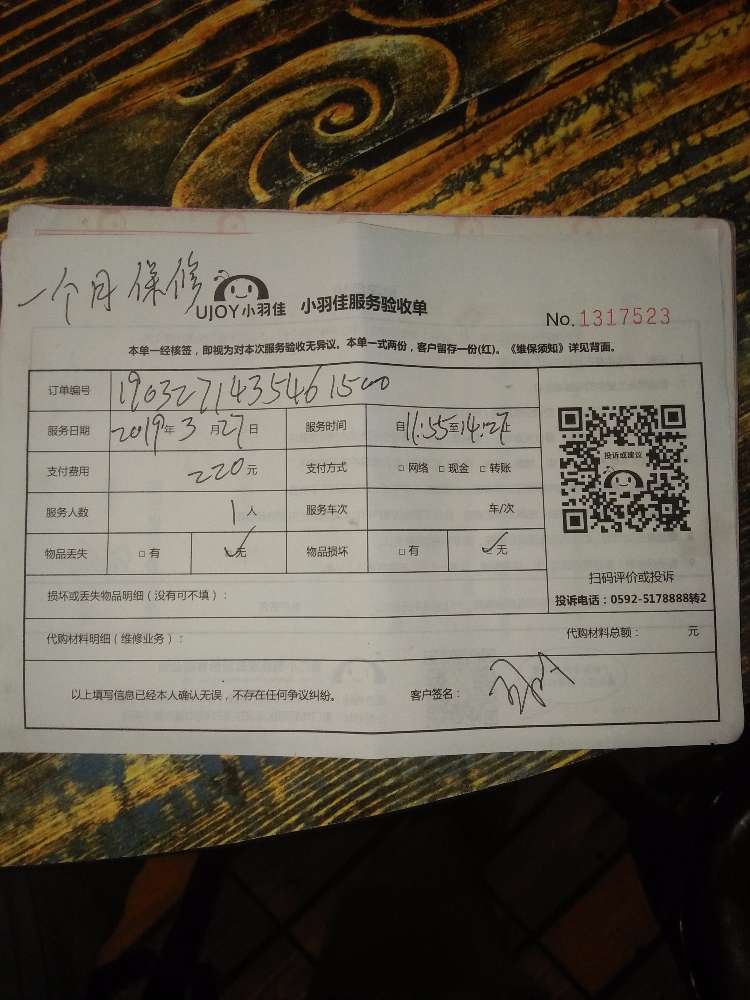 一个月保修
UJOY小羽佳 小羽佳服务验收单
No. 1317523
本单一经核签，即视为对本次服务验收无异议。本单一式两份，客户留存一份(红)。《维保须知》详见背面。
订单编号 190327143546 1500
服务日期 2019年3月27日 服务时间 自11:55至14:27止
投诉或建议
支付费用 220元 支付方式 □ 网络 □ 现金 □ 转账
服务人数 1人 服务车次 车/次
物品丢失 □ 有 ✓无 物品损坏 □ 有 ✓无
扫码评价或投诉
损坏或丢失物品明细（没有可不填）：
投诉电话：0592-5178888转2
代购材料明细（维修业务）： 代购材料总额： 元
以上填写信息已经本人确认无误，不存在任何争议纠纷。 客户签名：